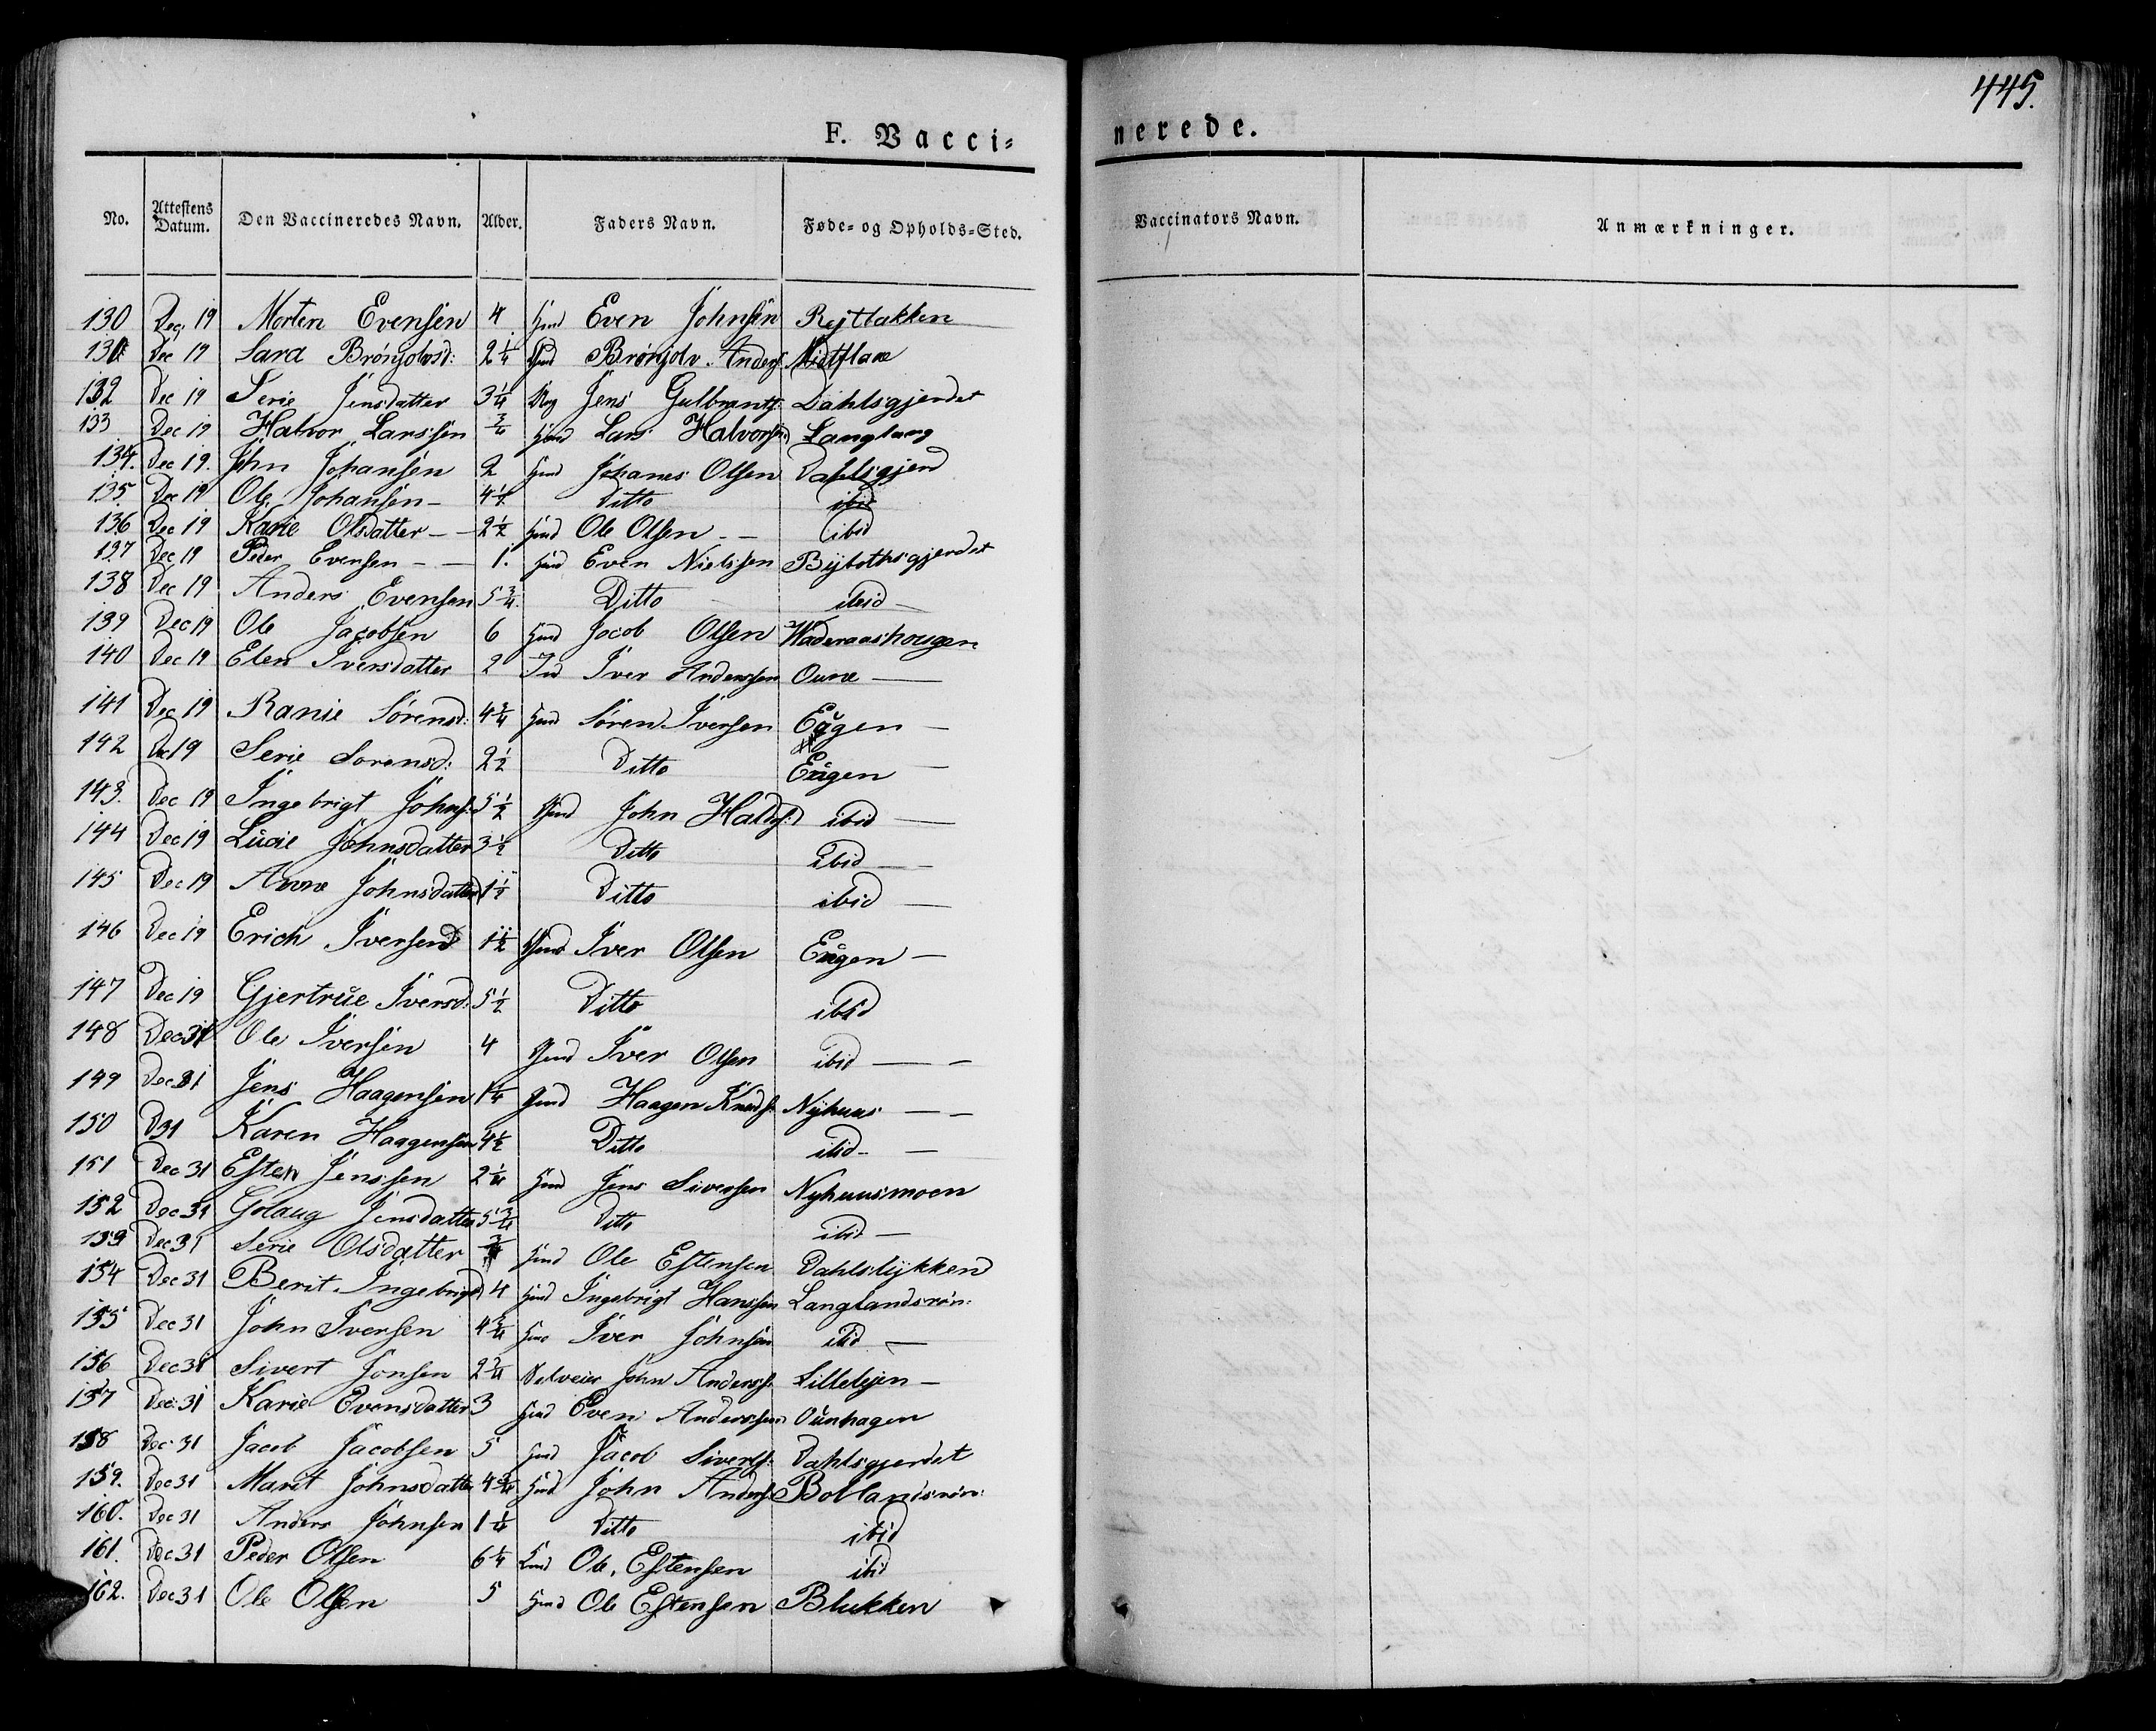 445.
F. Vacci= nerede.
No. Attestens Datum. Den Vaccineredes Navn. Alder. Faders Navn. Føde- og Opholds-Sted. Vaccinators Navn. Anmærkninger.
130 Dec 19 Morten Evensen 4 Hmd Even Johnsen
131 Dec 19 Sara 2 1/4 Hmd Brønjolv Anders: Midtflaae
132 Dec 19 Serie Jensdatter 3 1/4 Jens Gulbrants: Dahlsgjerdet
133 Dec 19 Halvor Larssen 3/4 Hmd Lars Halvorsen
134. Dec 19. John Johansen 2 Hmd Johanes Olsen Dahlsgjerd
135 Dec 19 Ole Johansen – 4 1/2 Ditto ibid
136 Dec 19 Karie Olsdatter – – 2 1/2 Hmd Ole Olsen – – ibid
137 Dec 19 Peder Evensen – – 1. Hmd Even Nielssen
138 Dec 19 Anders Evensen 5 3/4. Ditto ibid –
139 Dec 19 Ole Jacobsen 6 Hmd Jacob Olsen Waderaashougen
140 Dec 19 Elen Iversdatter 2 Iver Anderssen Oune –
141 Dec 19 Ranie Sørensd: 4 3/4 Hmd Søren Iversen Eggen –
142 Dec 19 Serie Sorensd: 2 1/2 Ditto Engen –
143. Dec 19 Ingebrigt Johns: 5 1/2 Hmd John ibid –
144 Dec 19 Lucie Johnsdatter 3 1/2 Ditto ibid –
145 Dec 19 Anne Johnsdatter 1 1/2 Ditto ibid –
146 Dec 19 Erich Iversen 1 1/2 Hmd Iver Olsen Engen –
147 Dec 19 Gjertrue Iversd: 5 1/2 Ditto ibid
148 Dec 31 Ole Iversen 4 Hmd Iver Olsen ibid – –
149 Dec 31 Jens Haagensen 1 1/4 Hmd Haagen Knuds: Nyhuus – –
150 D 31 Karen Haagensen 4 1/2 Ditto ibid – –
151 Dec 31 Esten Jenssen 2 1/4 Hmd Jens Siversen Nyhuusmoen
152 Dec 31 Golaug Jensdatter 5 3/4 Ditto ibid –
153 Dec 31 Serie Olsdatter 3/4 Hmd Ole Estensen Dahlslykken
154 Dec 31 Berit Ingebrigtd 4 Hmd Ingebrigt Hanssen Langlandsrøn:
155 Dec 31 John Iversen 4 3/4 Hmd Iver Johnsen ibid –
156 Dec 31 Sivert Jonsen 2 3/4 John Anderss: Lilleløjen –
157 Dec 31 Karie Evensdatter 3 Hmd Even Anderssen Ounhagen
158 Dec 31 Jacob Jacobsen 5 Hmd Jacob Siverts: Dahlsgjerdet
159. Dec 31 Marit Johnsdatter 4 3/4 Hmd John Anders: Bollandsrøn:
160. Dec 31 Anders Johnsen 1 1/4 Ditto ibid
161. Dec 31 Peder Olsen 6 1/4 Ole Estensen ibid
162. Dec 31 Ole Olsen 5 Hmd Ole Estensen Blukken